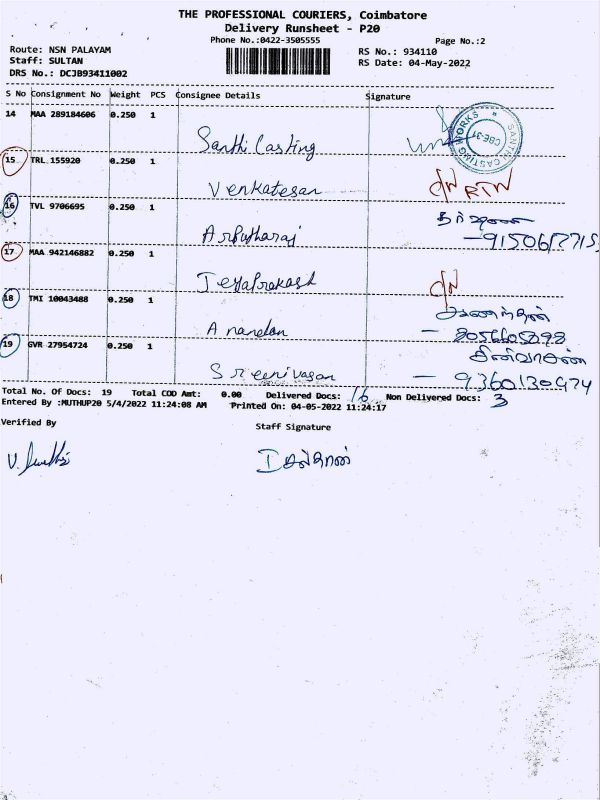 THE PROFESSIONAL COURIERS, Coimbatore
Delivery Runsheet - P20
Phone No.:0422-3505555
Page No.:2
Route: NSN PALAYAM
RS No.: 934110
Staff: SULTAN
RS Date: 04-May-2022
DRS No.: DCJB93411002
S No Consignment No Weight PCS Consignee Details Signature
14 MAA 289184606 0.250 1
Santhi Casting
SANTHI CASTING WORKS CBE-31
15 TRL 155920 0.250 1
Venkatesan RTN
16 TVL 9706695 0.250 1
Arputharaj
17 MAA 942146882 0.250 1
JeyaPrakash
18 TMI 10043488 0.250 1
Anandan
19 GVR 27954724 0.250 1
Sreenivasan
- 9360130474
Total No. Of Docs: 19 Total COD Amt: 0.00 Delivered Docs: 16 Non Delivered Docs: 3
Entered By :MUTHUP20 5/4/2022 11:24:08 AM Printed On: 04-05-2022 11:24:17
Verified By
Staff Signature